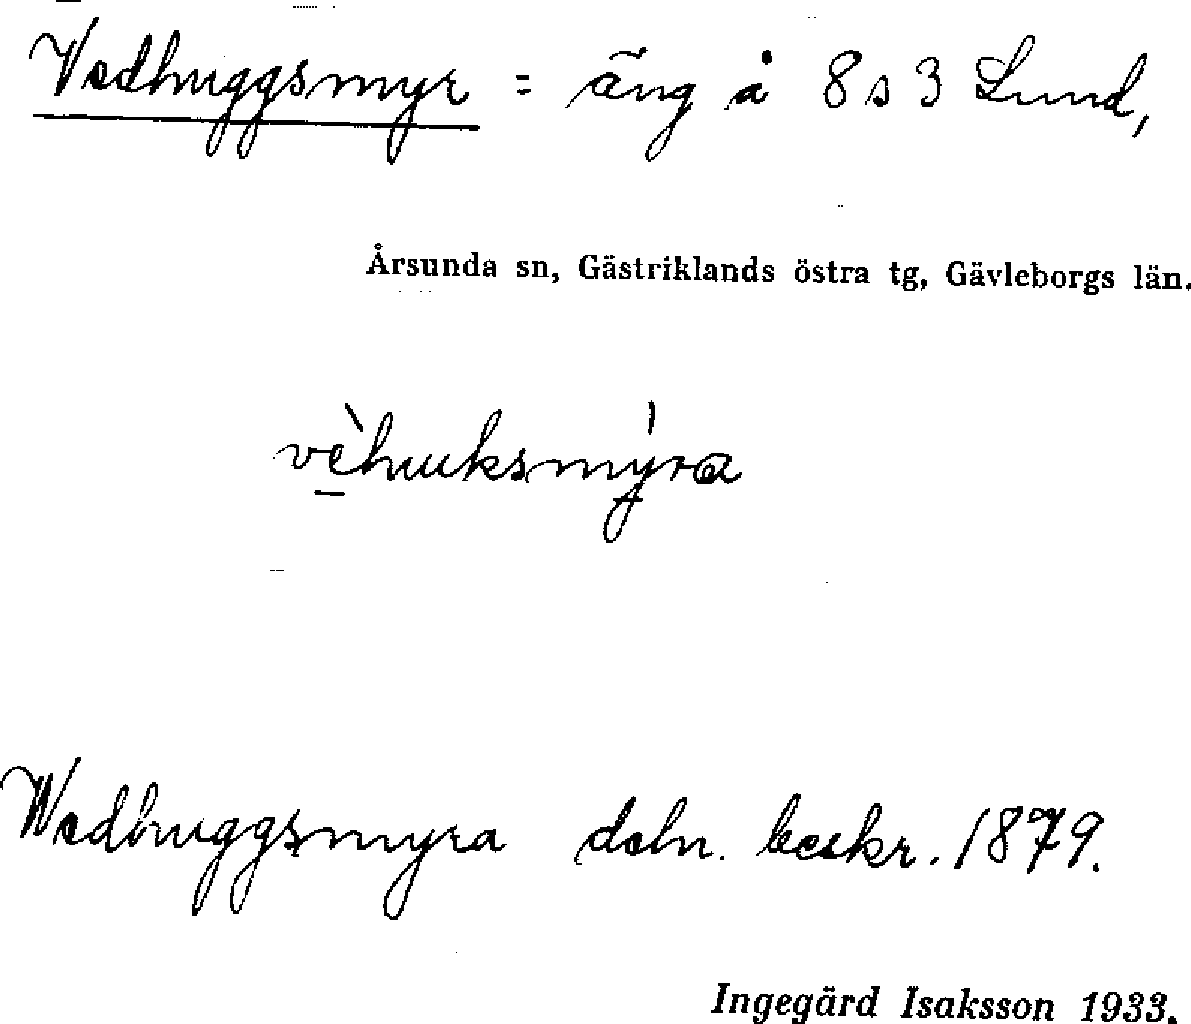 Vedhuggsmyr = äng å 8 s 3 Lund,
Årsunda sn, Gästriklands östra tg, Gävleborgs län.
vèhuksmy̍ra
Wedhuggsmyra deln. beskr. 1879.
Ingegärd Isaksson 1933.